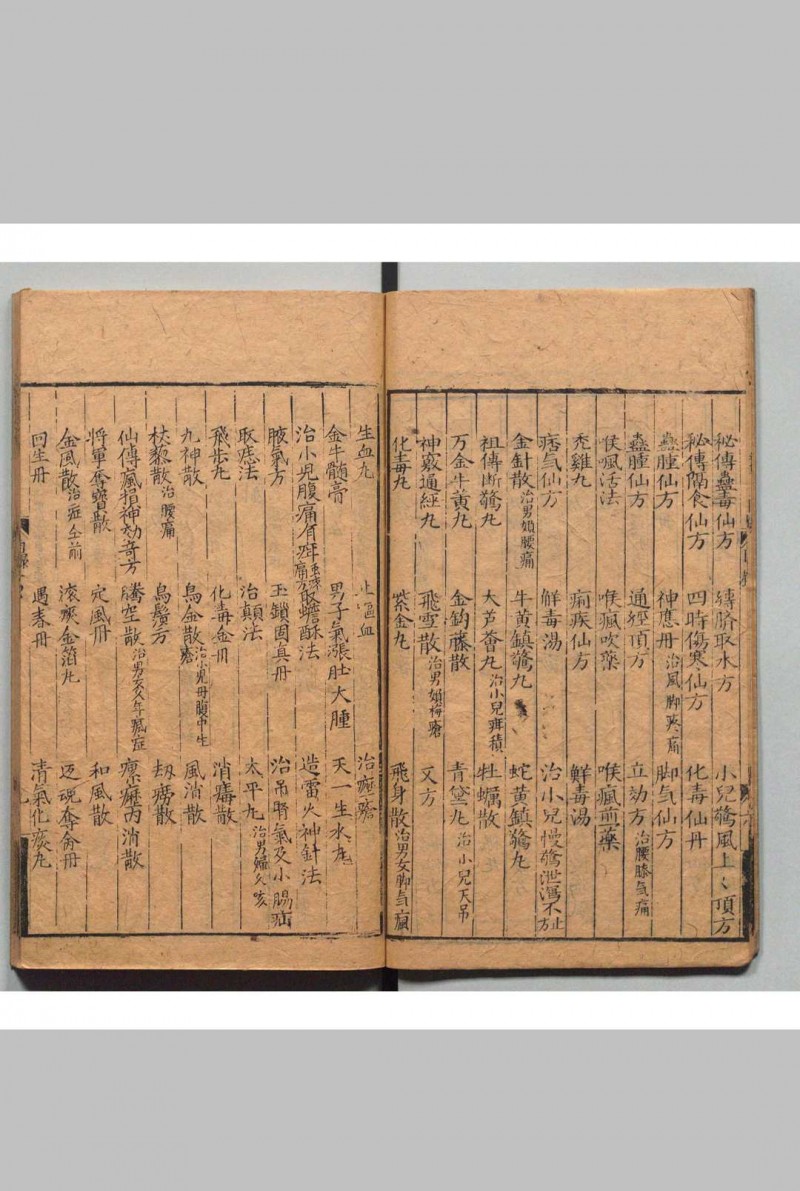 秘傳蠱毒仙方 縳臍取水方 小兒驚風上〻頂方
秘傳隔食仙方 四時傷寒仙方 化毒仙丹
蠱腫仙方 神應丹治風脚疼痛 脚气仙方
蠱腫仙方 通經頂方 立効方治腰膝气痛
喉瘋活法 喉瘋吹藥 喉瘋煎藥
禿雞丸 痢疾仙方 觧毒湯
痞气仙方 觧毒湯 治小兒慢驚泄瀉不止方
金針散治男婦腰痛 牛黄鎮驚丸 蛇黄鎮驚丸
祖傳断驚丸 大芦薈丸治小兒疳積 牡蠣散
万金牛黄丸 金鈎藤散 青黛丸治小兒天吊
神竅通經丸 飛雪散治男婦梅瘡 又方
化毒丸 紫金丸 飛身散治男女脚气瘋
生血丸 止嘔血 治瘧瘡
金牛髓膏 男子氣漲肚大腫 天一生水丸
治小兒腹痛有痾 取蟾酥法 造雷火神針法
腋氣方 玉鎖固真丹 治吊腎氣及小腸疝
取痣法 治顛法 太平丸治男婦久咳
飛步丸 化毒金丹 消毒散
九神散 烏金散治小兒丹腹中生瘡 風消散
杖藜散治腰痛 烏鬚方 刼癆散
仙傳瘋損神効奇方 騰空散治男女年瘋症 瘰癧丙消散
將軍奪寶散 定風丹 和風散
金風散治症仝前 滚痰金箔丸 返魂奪命丹
回生丹 遇春丹 清氣化痰丸